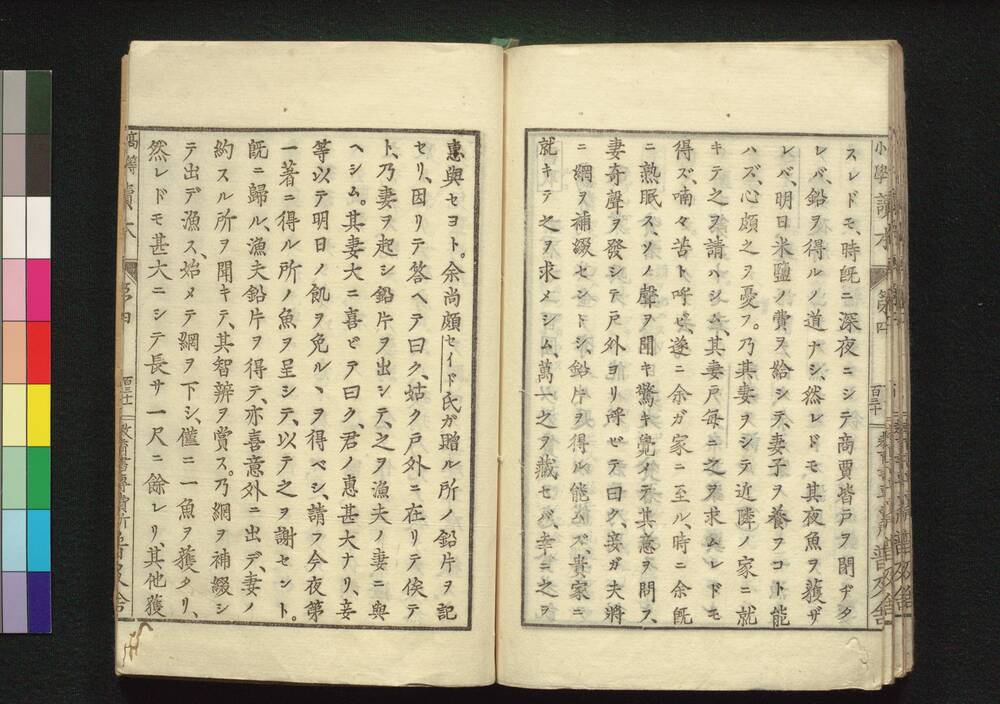 小學讀本 第四
スレドモ、時旣ニ深夜ニシテ商賈皆戸ヲ閉ヂタ
レバ、鉛ヲ得ルノ道ナシ、然レドモ其夜魚ヲ獲ザ
レバ、明日米鹽ノ費ヲ給シテ、妻子ヲ養フコト能
ハズ、心頗之ヲ憂フ。乃其妻ヲシテ近隣ノ家ニ就
キテ之ヲ請ハシム、其妻戸每ニ之ヲ求ムレドモ
得ズ、喃々苦ト呼ビ、遂ニ余ガ家ニ至ル、時ニ余旣
ニ熟眠ス、ソノ聲ヲ聞キ驚キ覺メテ其意ヲ問ス、
妻奇聲ヲ發シテ戸外ヨリ呼ビテ曰ク、妾ガ夫將
ニ網ヲ補綴セントシ、鉛片ヲ得ル能ハズ、貴家ニ
就キテ之ヲ求メシム、萬一之ヲ藏セバ、幸ニ之ヲ
百三十
普及舍
惠與セヨト。余尚頗セイド氏ガ贈ル所ノ鉛片ヲ記
セリ、因リテ答ヘテ曰ク、姑ク戸外ニ在リテ俟テ
ト、乃妻ヲ起シ鉛片ヲ出シテ、之ヲ漁夫ノ妻ニ與
ヘシム。其妻大ニ喜ビテ曰ク、君ノ惠甚大ナリ、妾
等以テ明日ノ飢ヲ免ルヽヲ得ベシ、請フ今夜第
一著ニ得ル所ノ魚ヲ呈シテ、以テ之ヲ謝セント。
旣ニ歸ル、漁夫鉛片ヲ得テ、亦喜意外ニ出デ、妻ノ
約スル所ヲ聞キテ、其智辨ヲ賞ス。乃網ヲ補綴シ
テ出デ漁ス、始メテ網ヲ下シ、僅ニ一魚ヲ獲タリ、
然レドモ甚大ニシテ長サ一尺ニ餘レリ、其他獲
高等讀本 第四
百三十一
教育書專賣所普及舍